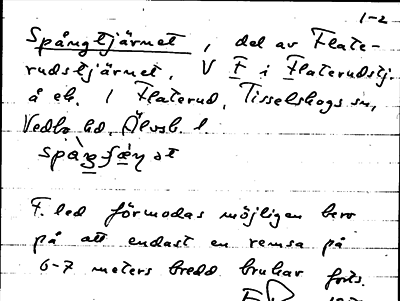 1-2
Spångtjärnet, del av Flate-
rudstjärnet, V F i Flaterudstj.
å ek. 1 Flaterud, Tisselskogs sn,
Vedbo hd, Älvsb. l
F. led förmodas möjligen bero
på att endast en remsa på
6-7 meters bredd brukar forts.